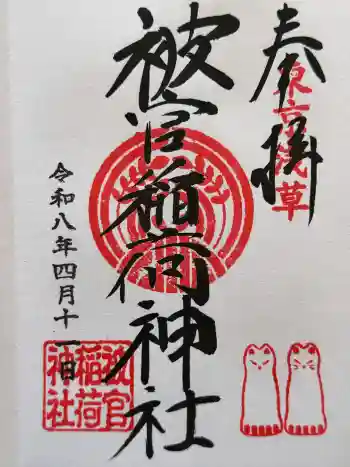 奉拝
東京浅草
被官稲荷神社
令和八年四月十一日
被官
稲荷
神社